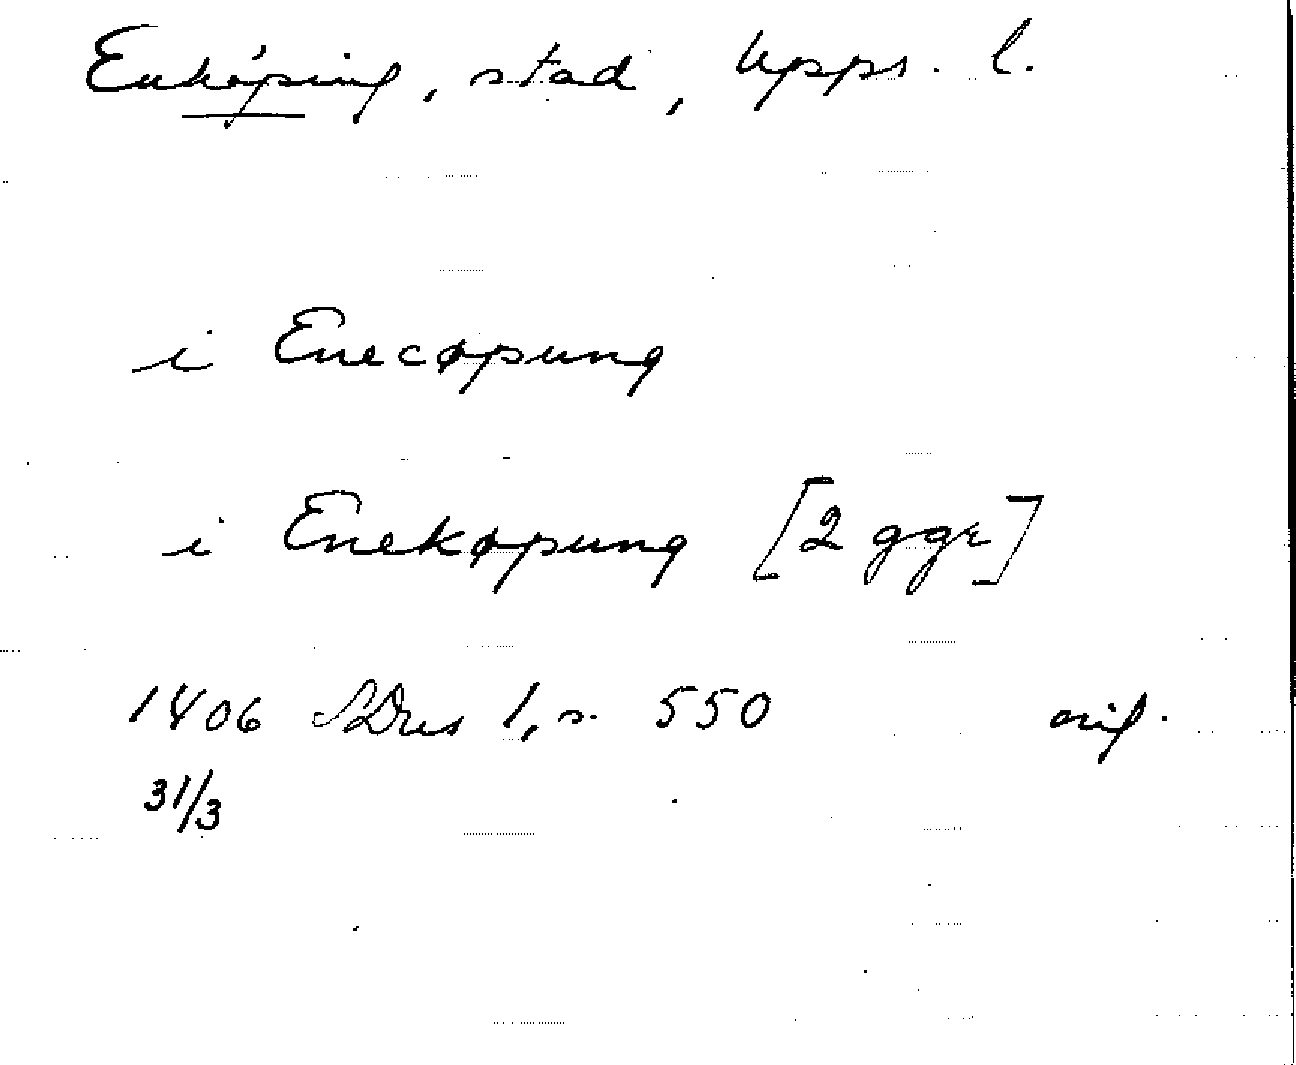 Enköping, stad, Upps. l.
i Enecøpung
i Enekøpung [2 ggr]
1406 SDns 1, s. 550 orig.
31/3